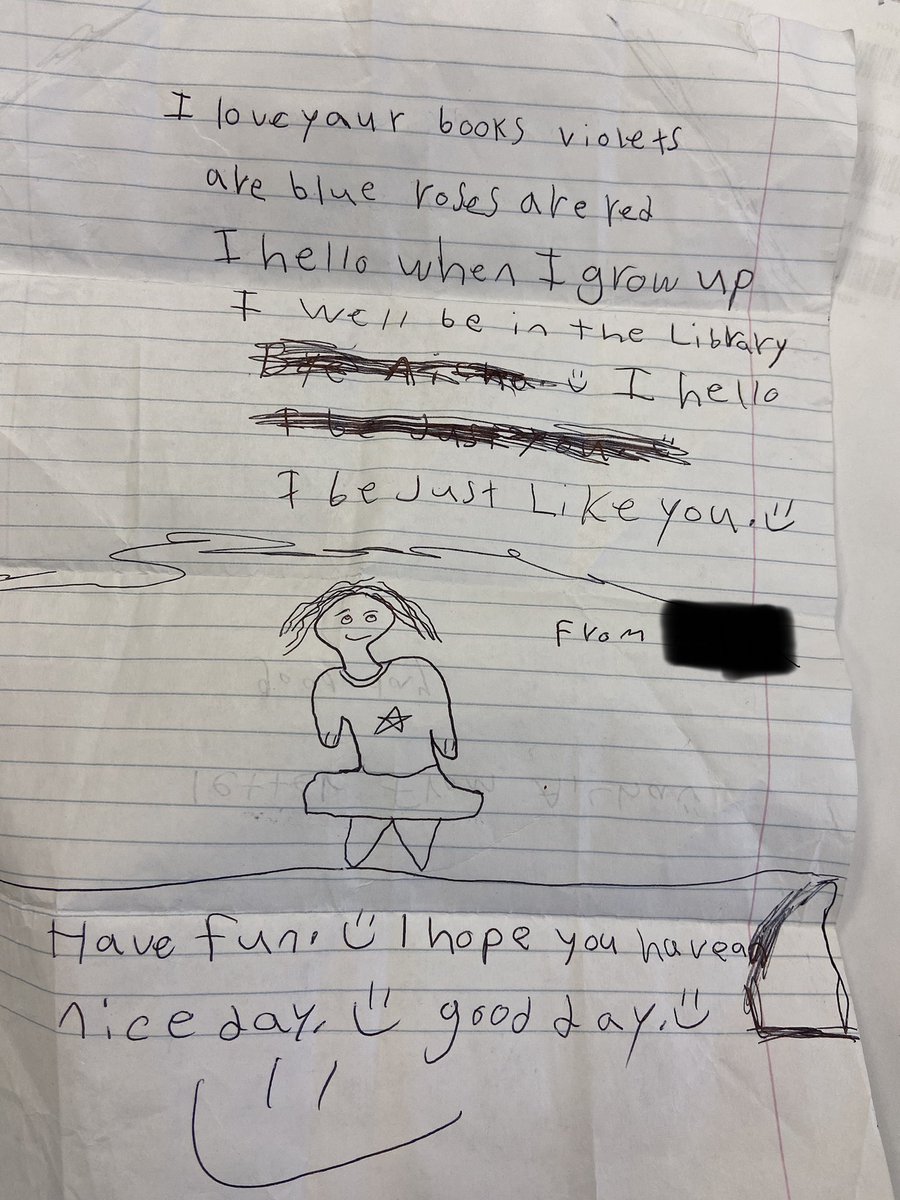 I love yaur books violets
are blue roses are red
I hello when I grow up
I well be in the Library
I hello
I be Just Like you.
From
Have fun. I hope you havean
nice day. good day.